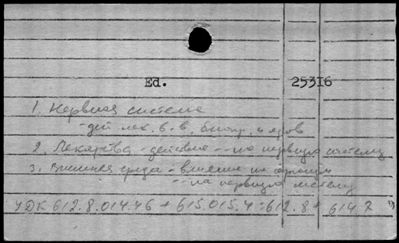 Ed. 25316
1. Нервная система
- дей лек. в. в. биол. и ядов
2. Лекарства - действие -- на нервную систему
3. Внешняя среда - влияние на организм
-- на нервную систему
УДК 612.8.014.46 + 615.015.4:612.8 + 614.7